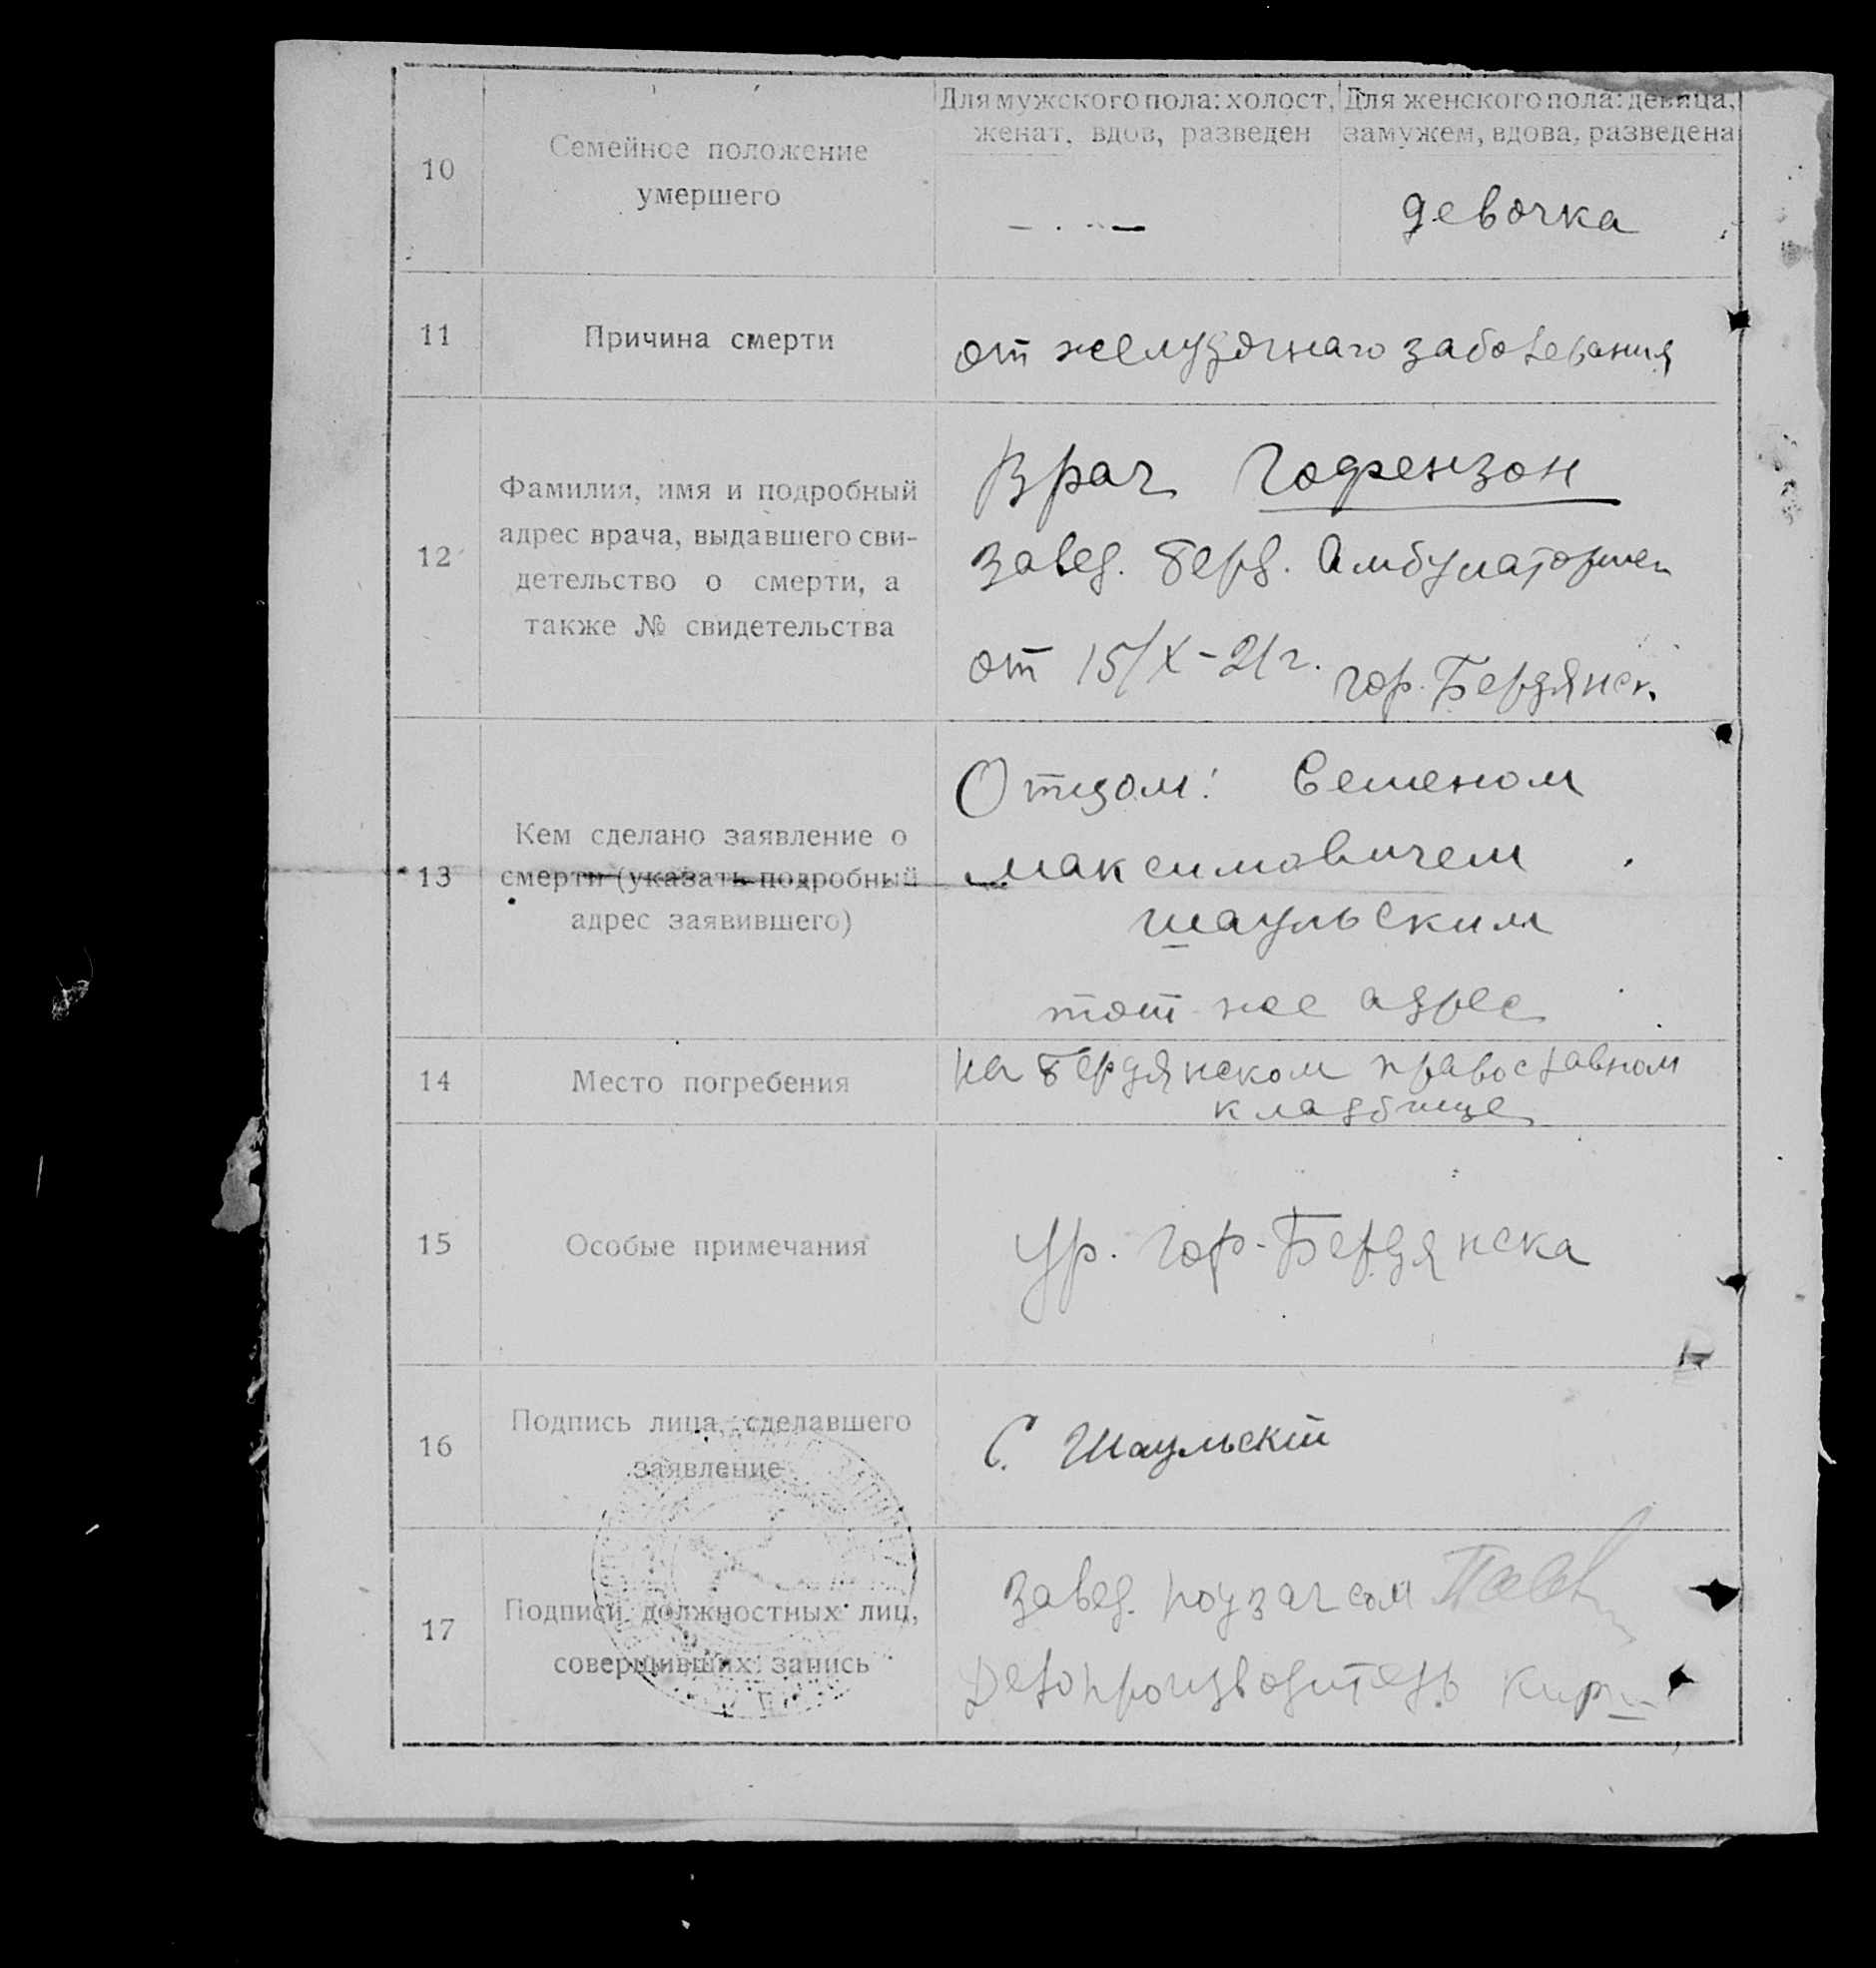 10
Семейное положение
умершего
Для мужского пола: холост,
женат, вдов, разведен
Для женского пола: девица,
замужем, вдова, разведена
девочка
11
Причина смерти
от желудочнаго заболевания
12
Фамилия, имя и подробный
адрес врача, выдавшего сви-
детельство о смерти, а
также № свидетельства
Врач Гофензон
Завед. Берд. Амбулаторией
от 15/X-21г. гор. Бердянск
13
Кем сделано заявление о
смерти (указать подробный
адрес заявившего)
Отцом: Семеном
Максимовичем
Шаульским
тот же адрес
14
Место погребения
на Бердянском православном
кладбище
15
Особые примечания
Ур. гор. Бердянска
16
Подпись лица, сделавшего
заявление
С. Шаульскій
17
Подписи должностных лиц,
совершивших запись
Завед. подзагсом
Делопроизводитель